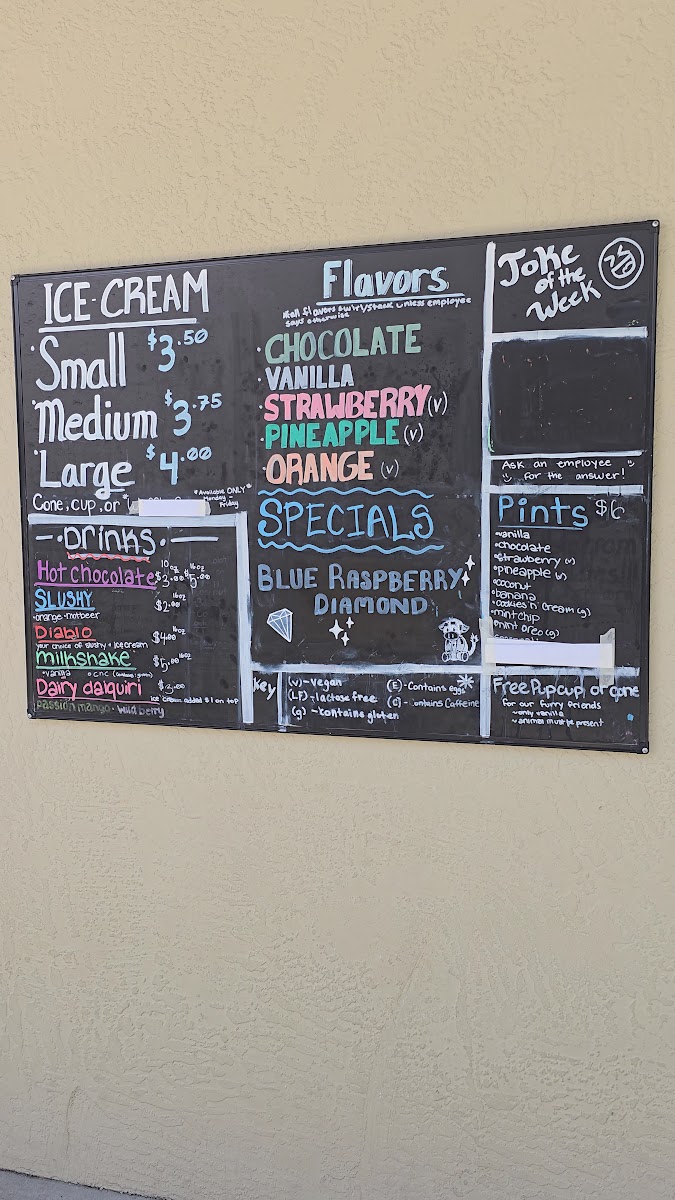 ICE-CREAM
Small $3.50
Medium $3.75
Large $4.00
Cone, cup, or
*Available ONLY*
Monday -
Friday
Drinks
Hot chocolate 10oz $3.00 16oz $5.00
SLUSHY 16oz $2.00
•orange •
Diablo 16oz $4.00
your choice of slushy + ice cream
milkshake $5.00 16oz
•vanilla •CNC
Dairy daiquiri $3.00
ice cream added $1 on top
passion mango • wild berry
Flavors
flavors swirl/stack unless employee
says otherwise
•CHOCOLATE
•VANILLA
•STRAWBERRY (v)
•PINEAPPLE (v)
•ORANGE (v)
SPECIALS
BLUE RASPBERRY
DIAMOND
Key
(v) - vegan
(LF) - lactose free
(g) - contains gluten
(E) - Contains eggs
contains Caffeine
Joke
of the
Week
Ask an employee
for the answer!
Pints $6
•vanilla
•chocolate
•strawberry (v)
•pineapple (v)
•coconut
•banana
•cookies n cream (g)
•mint chip
•mint oreo (g)
Free Pupcup or cone
for our furry friends
only vanilla
animal must be present